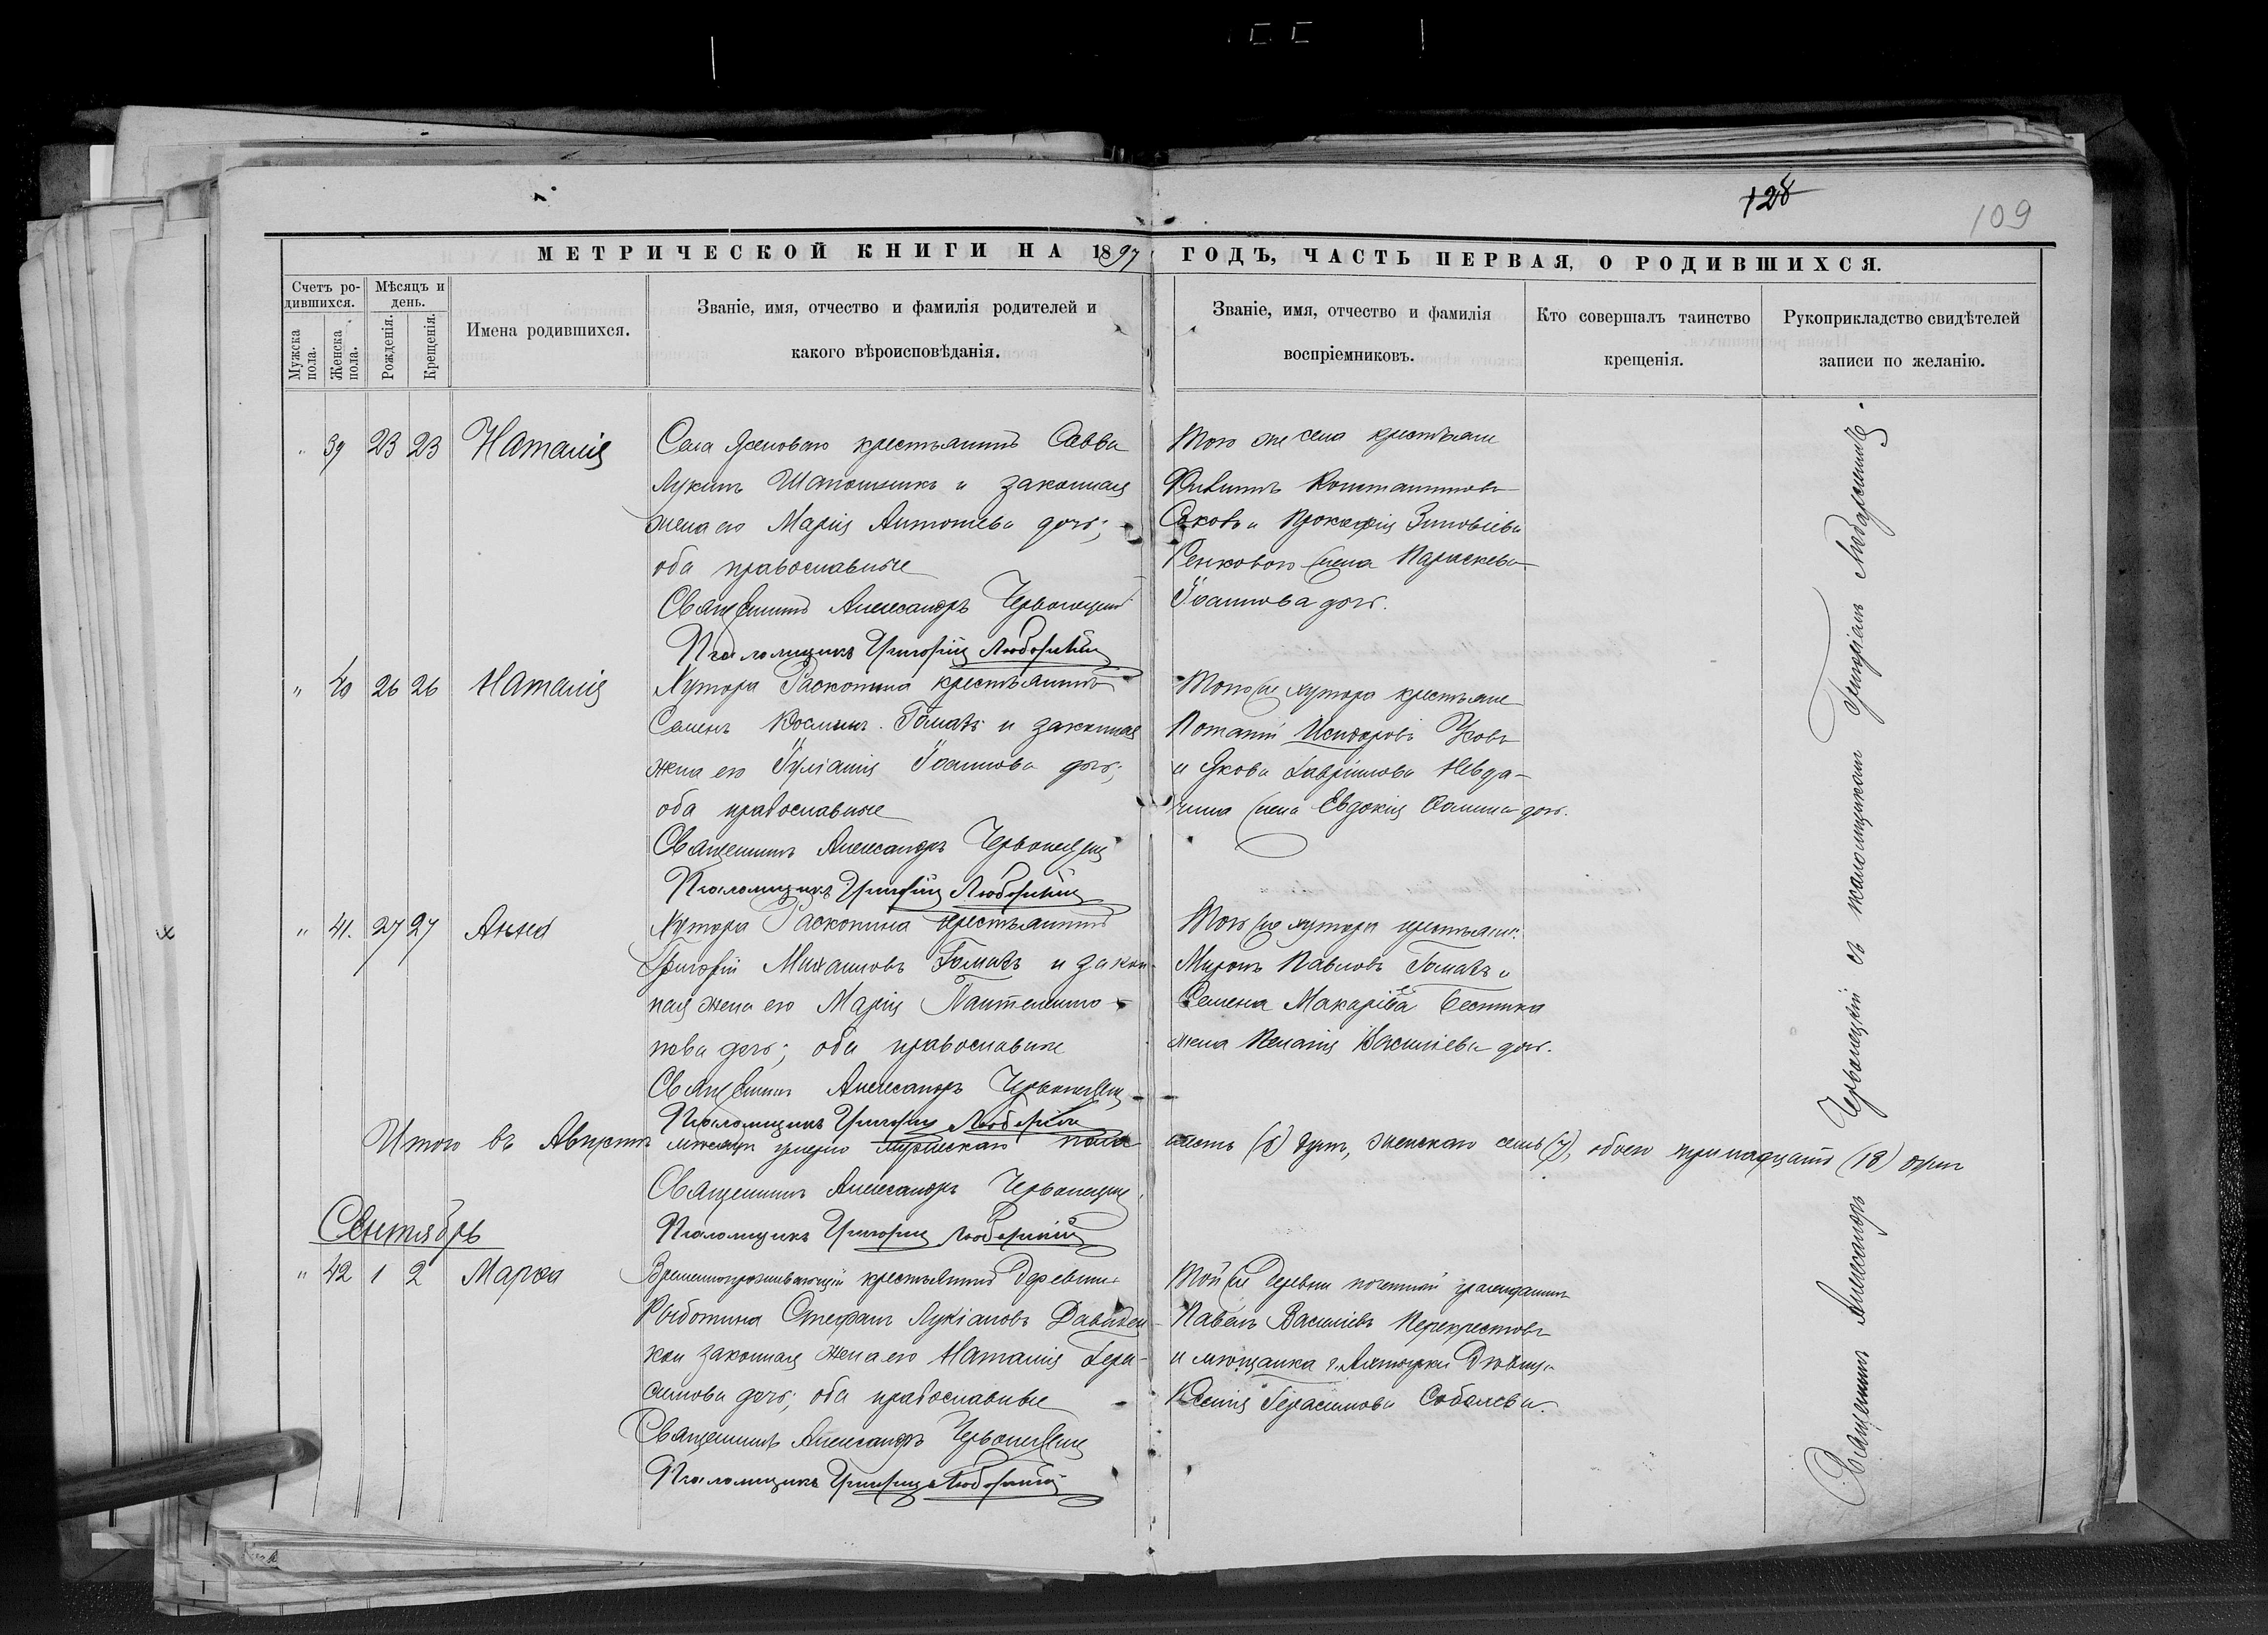 128
109
МЕТРИЧЕСКОЙ КНИГИ НА 1897
ГОДЪ, ЧАСТЬ ПЕРВАЯ, О РОДИВШИХСЯ.
Счетъ ро-
дившихся.
Мужска
пола.
Женска
пола.
Мѣсяцъ и
день.
Рожденія.
Крещенія.
Имена родившихся.
Званіе, имя, отчество и фамилія родителей и
какого вѣроисповѣданія.
Званіе, имя, отчество и фамилія
воспріемниковъ.
Кто совершалъ таинство
крещенія.
Рукоприкладство свидѣтелей
записи по желанію.
" 39 23 23 Наталія
Села Ясеноваго крестьянинъ Савва
Лукинъ и законная
жена его Марія Антоніева дочь;
оба православные
Священникъ Александръ Червонецкій
Псаломщикъ Григорій Любарскій
Того же села крестьяне
Константиновъ
и Зиновіева
жена Параскева
Іоаннова дочь.
" 40 26 26 Наталія
Хутора Раскопина крестьянинъ
Семенъ Косминъ Гомазъ и законная
жена его Іуліанія Іоаннова дочь;
оба православные
Священникъ Александръ Червонецкій
Псаломщикъ Григорій Любарскій
Того же хутора крестьяне
Потапій Исидоровъ Усовъ
и Якова Гавріилова Невда-
чина жена Евдокія дочь.
" 41. 27 27 Анна
Хутора Раскопина крестьянинъ
Григорій Михаиловъ Гомазъ и закон-
ная жена его Марія Пантелеимо-
нова дочь; оба православные
Священникъ Александръ Червонецкій
Псаломщикъ Григорій Любарскій
Того же хутора крестьяне:
Миронъ Павловъ Гомазъ и
Семена Макаріева
жена Меланія Василіева дочь.
Итого въ Августѣ мѣсяцѣ умерло мужескаго пола шесть (6) душъ, женскаго семь (7), обоего тринадцать (13) душъ
Священникъ Александръ Червонецкій
Псаломщикъ Григорій Любарскій
Сентябрь
" 42 1 2 Марѳа
Временнопроживающій крестьянинъ деревни
Рыботина Стефанъ Лукіановъ Давиден-
ко и законная жена его Наталія Гера-
симова дочь; оба православные
Священникъ Александръ Червонецкій
Псаломщикъ Григорій Любарскій
Той же деревни почетный гражданинъ
Павелъ Василіевъ Перекрестовъ
и мѣщанка г. Ахтырки дѣвица
Ксенія Герасимова Соболева.
Священникъ Александръ Червонецкій съ псаломщикомъ Григоріемъ Любарскимъ.